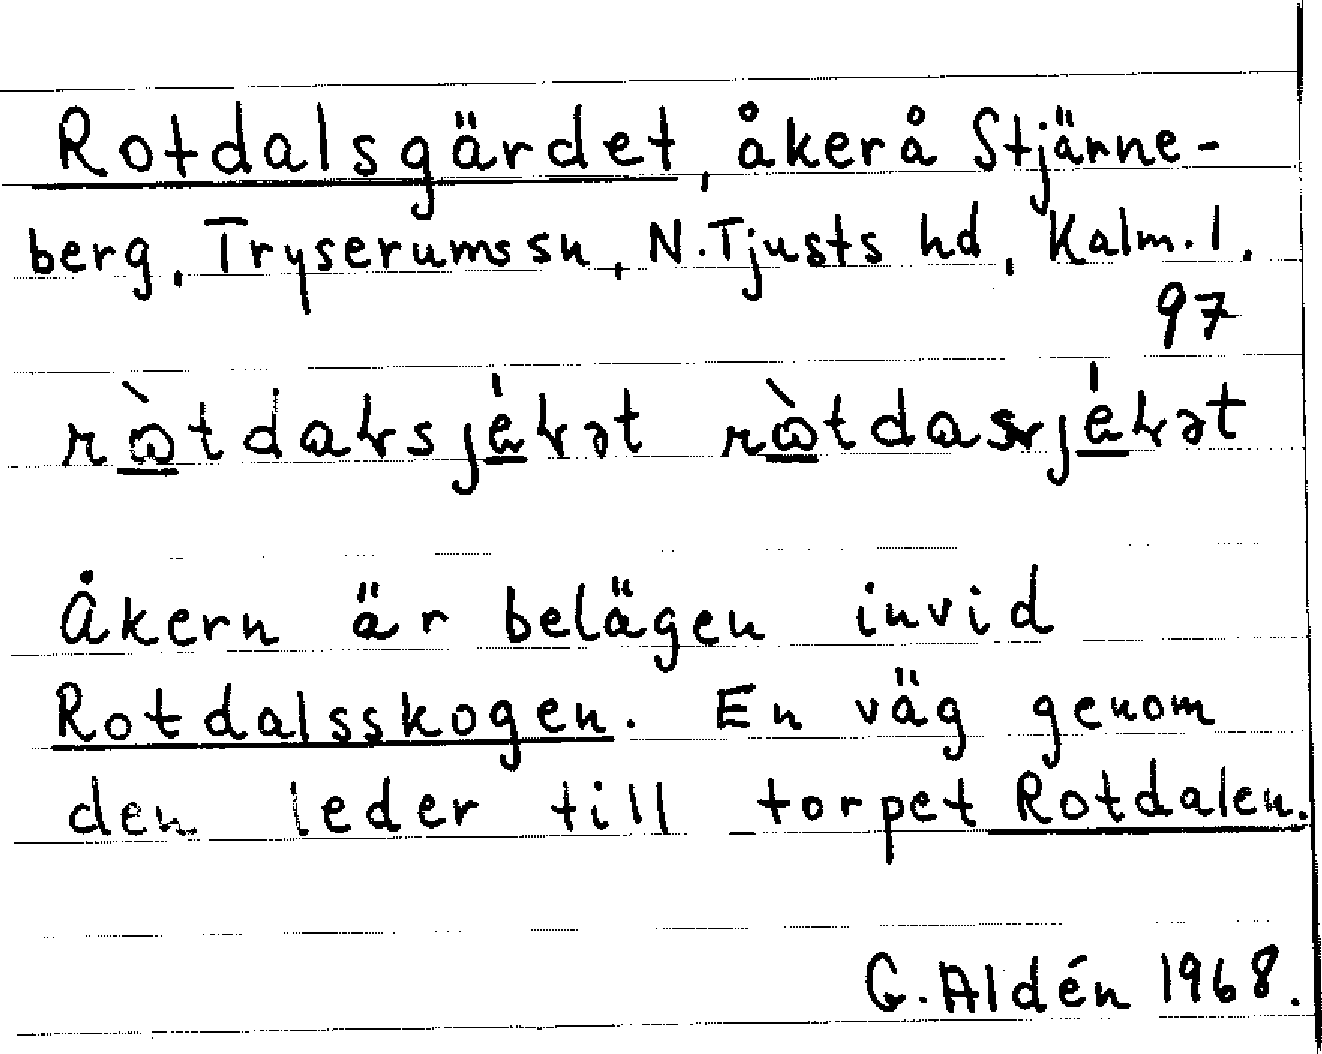 Rotdalsgärdet, åker å Stjärne-
berg, Tryserums sn, N. Tjusts hd, Kalm. l.
97
Åkern är belägen invid
Rotdalsskogen. En väg genom
den leder till torpet Rotdalen.
G. Aldén 1968.